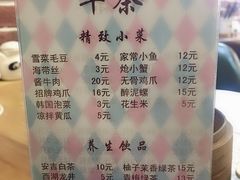 早茶
精致小菜
雪菜毛豆 4元 家常小鱼 12元
海带丝 3元 炝小蟹 2元
酱牛肉 20元 无骨鸡爪 12元
招牌鸡爪 16元 醉泥螺 15元
韩国泡菜 3元 花生米 5元
凉拌黄瓜 5元
养生饮品
安吉白茶 10元 柚子茉香绿茶 15元
西湖龙井 青梅绿茶 13元